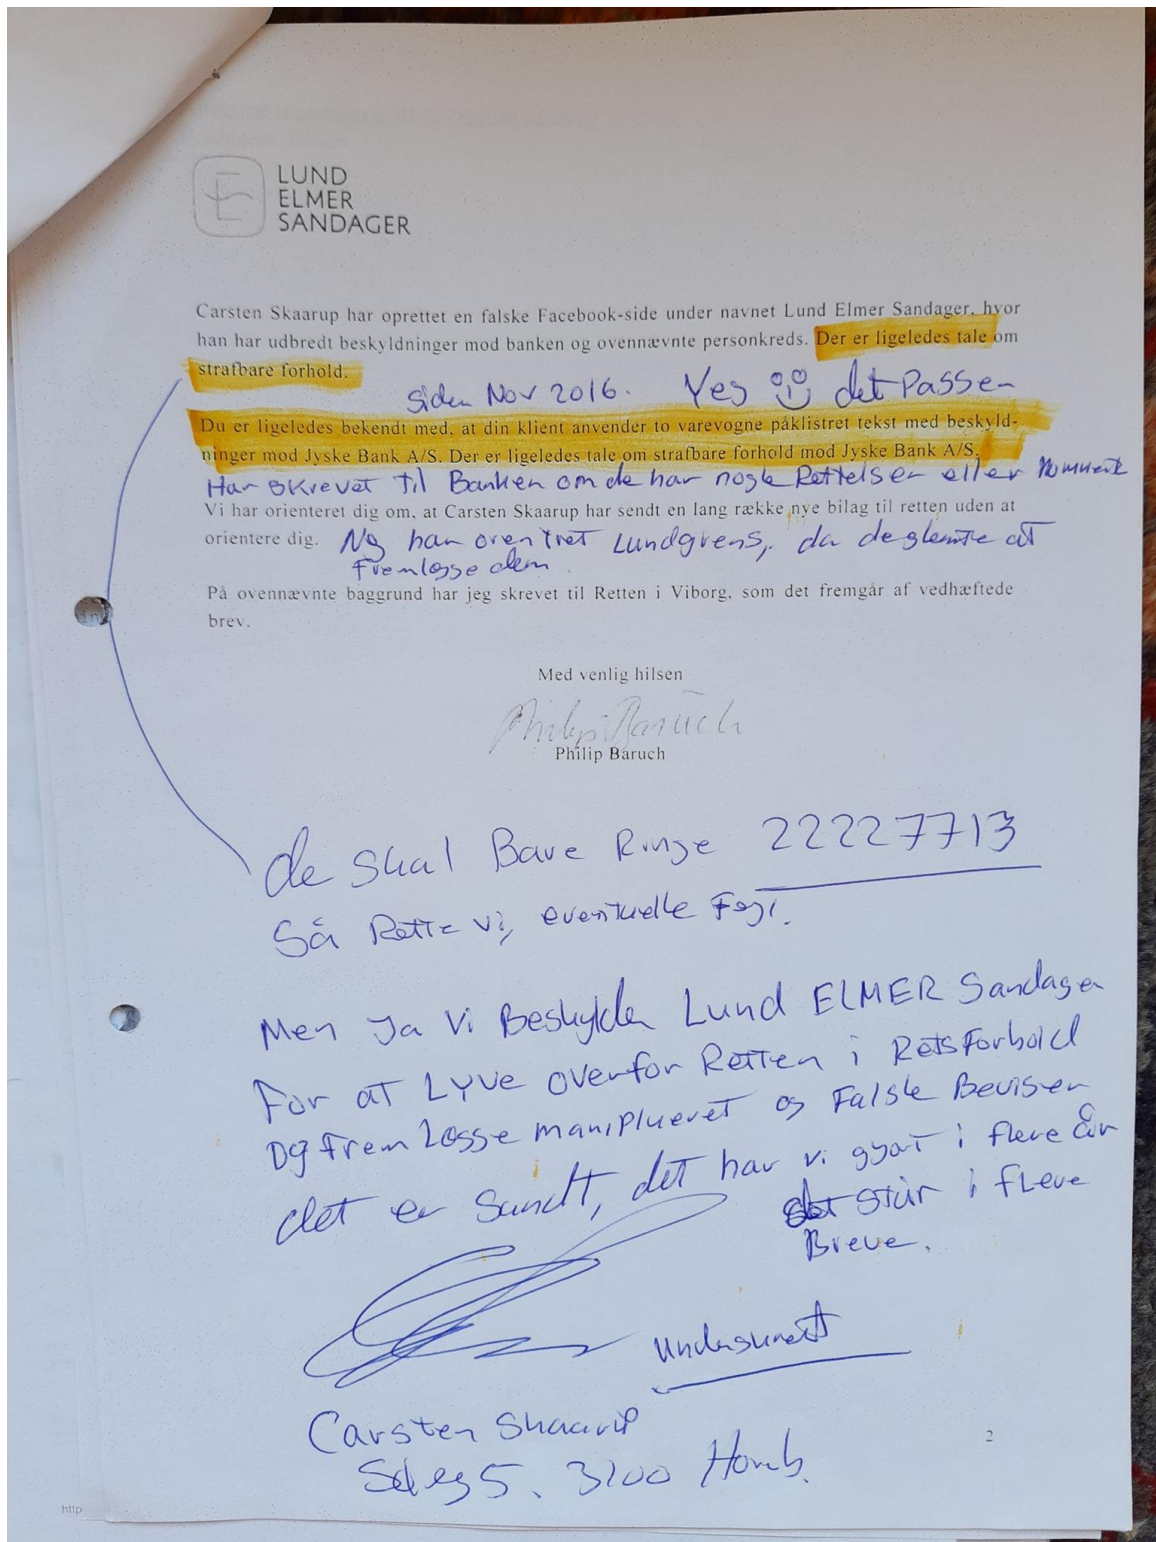 LUND
ELMER
SANDAGER
Carsten Skaarup har oprettet en falske Facebook-side under navnet Lund Elmer Sandager, hvor
han har udbredt beskyldninger mod banken og ovennævnte personkreds. Der er ligeledes tale om
strafbare forhold.
siden Nov 2016. Yes det Passer
Du er ligeledes bekendt med, at din klient anvender to varevogne påklistret tekst med beskyld-
ninger mod Jyske Bank A/S. Der er ligeledes tale om strafbare forhold mod Jyske Bank A/S.
Har skrevet til Banken om de har nogle Rettelser eller
Vi har orienteret dig om, at Carsten Skaarup har sendt en lang række nye bilag til retten uden at
orientere dig. har orentret Lundgrens, da de glemte at
fremlægge dem.
På ovennævnte baggrund har jeg skrevet til Retten i Viborg, som det fremgår af vedhæftede
brev.
Med venlig hilsen
Philip Baruch
Philip Baruch
de skal Bare Ringe 22227713
Så Rette vi, eventuelle Fejl.
Men Ja Vi Beskylder Lund ELMER Sandager
For at LYVE overfor Retten i Retsforhold
Og frem Lægge maniplueret og Falske Beviser
det er Sandt, det har vi gjort i flere år
det står i fleve
Breve.
Underskrevet
Carsten Skaarup
3100 Hornb.
2
http